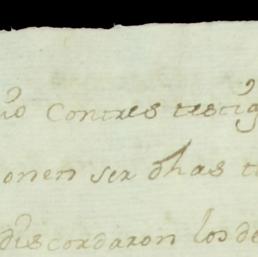 io Contres testig
onen ser dhas t
discordaron los de